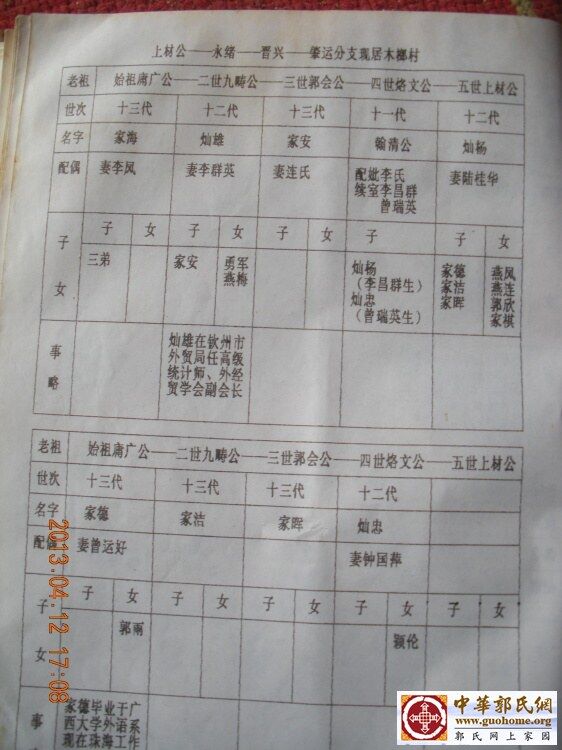 上材公——永绪——晋兴——肇运分支现居木榔村
老祖 始祖庯广公——二世九畴公——三世郭会公——四世烙文公——五世上材公
世次 十三代 十二代 十三代 十一代 十二代
名字 家海 灿雄 家安 翰清公 灿杨
配偶 妻李凤 妻李群英 妻连氏 配妣李氏 妻陆桂华
续室李昌群
曾瑞英
子女 子 女 子 女 子 女 子 子 女
三弟 家安 勇军 灿杨 家德 燕凤
燕梅 (李昌群生) 家洁 燕连
灿忠 家晖 郭欣
(曾瑞英生) 家棋
事略 灿雄在钦州市
外贸局任高级
统计师、外经
贸学会副会长
老祖 始祖庯广公——二世九畴公——三世郭会公——四世烙文公——五世上材公
世次 十三代 十三代 十三代 十二代
名字 家德 家洁 家晖 灿忠
配偶 妻曾运好 妻钟国萍
子女 子 女 子 女 子 女 子 女 子 女
郭雨 颖伦
事 家德毕业于广
西大学外语系
现在珠海工作
2013.04.12 17:08
中華郭氏網
www.guohome.org
郭氏网上家园